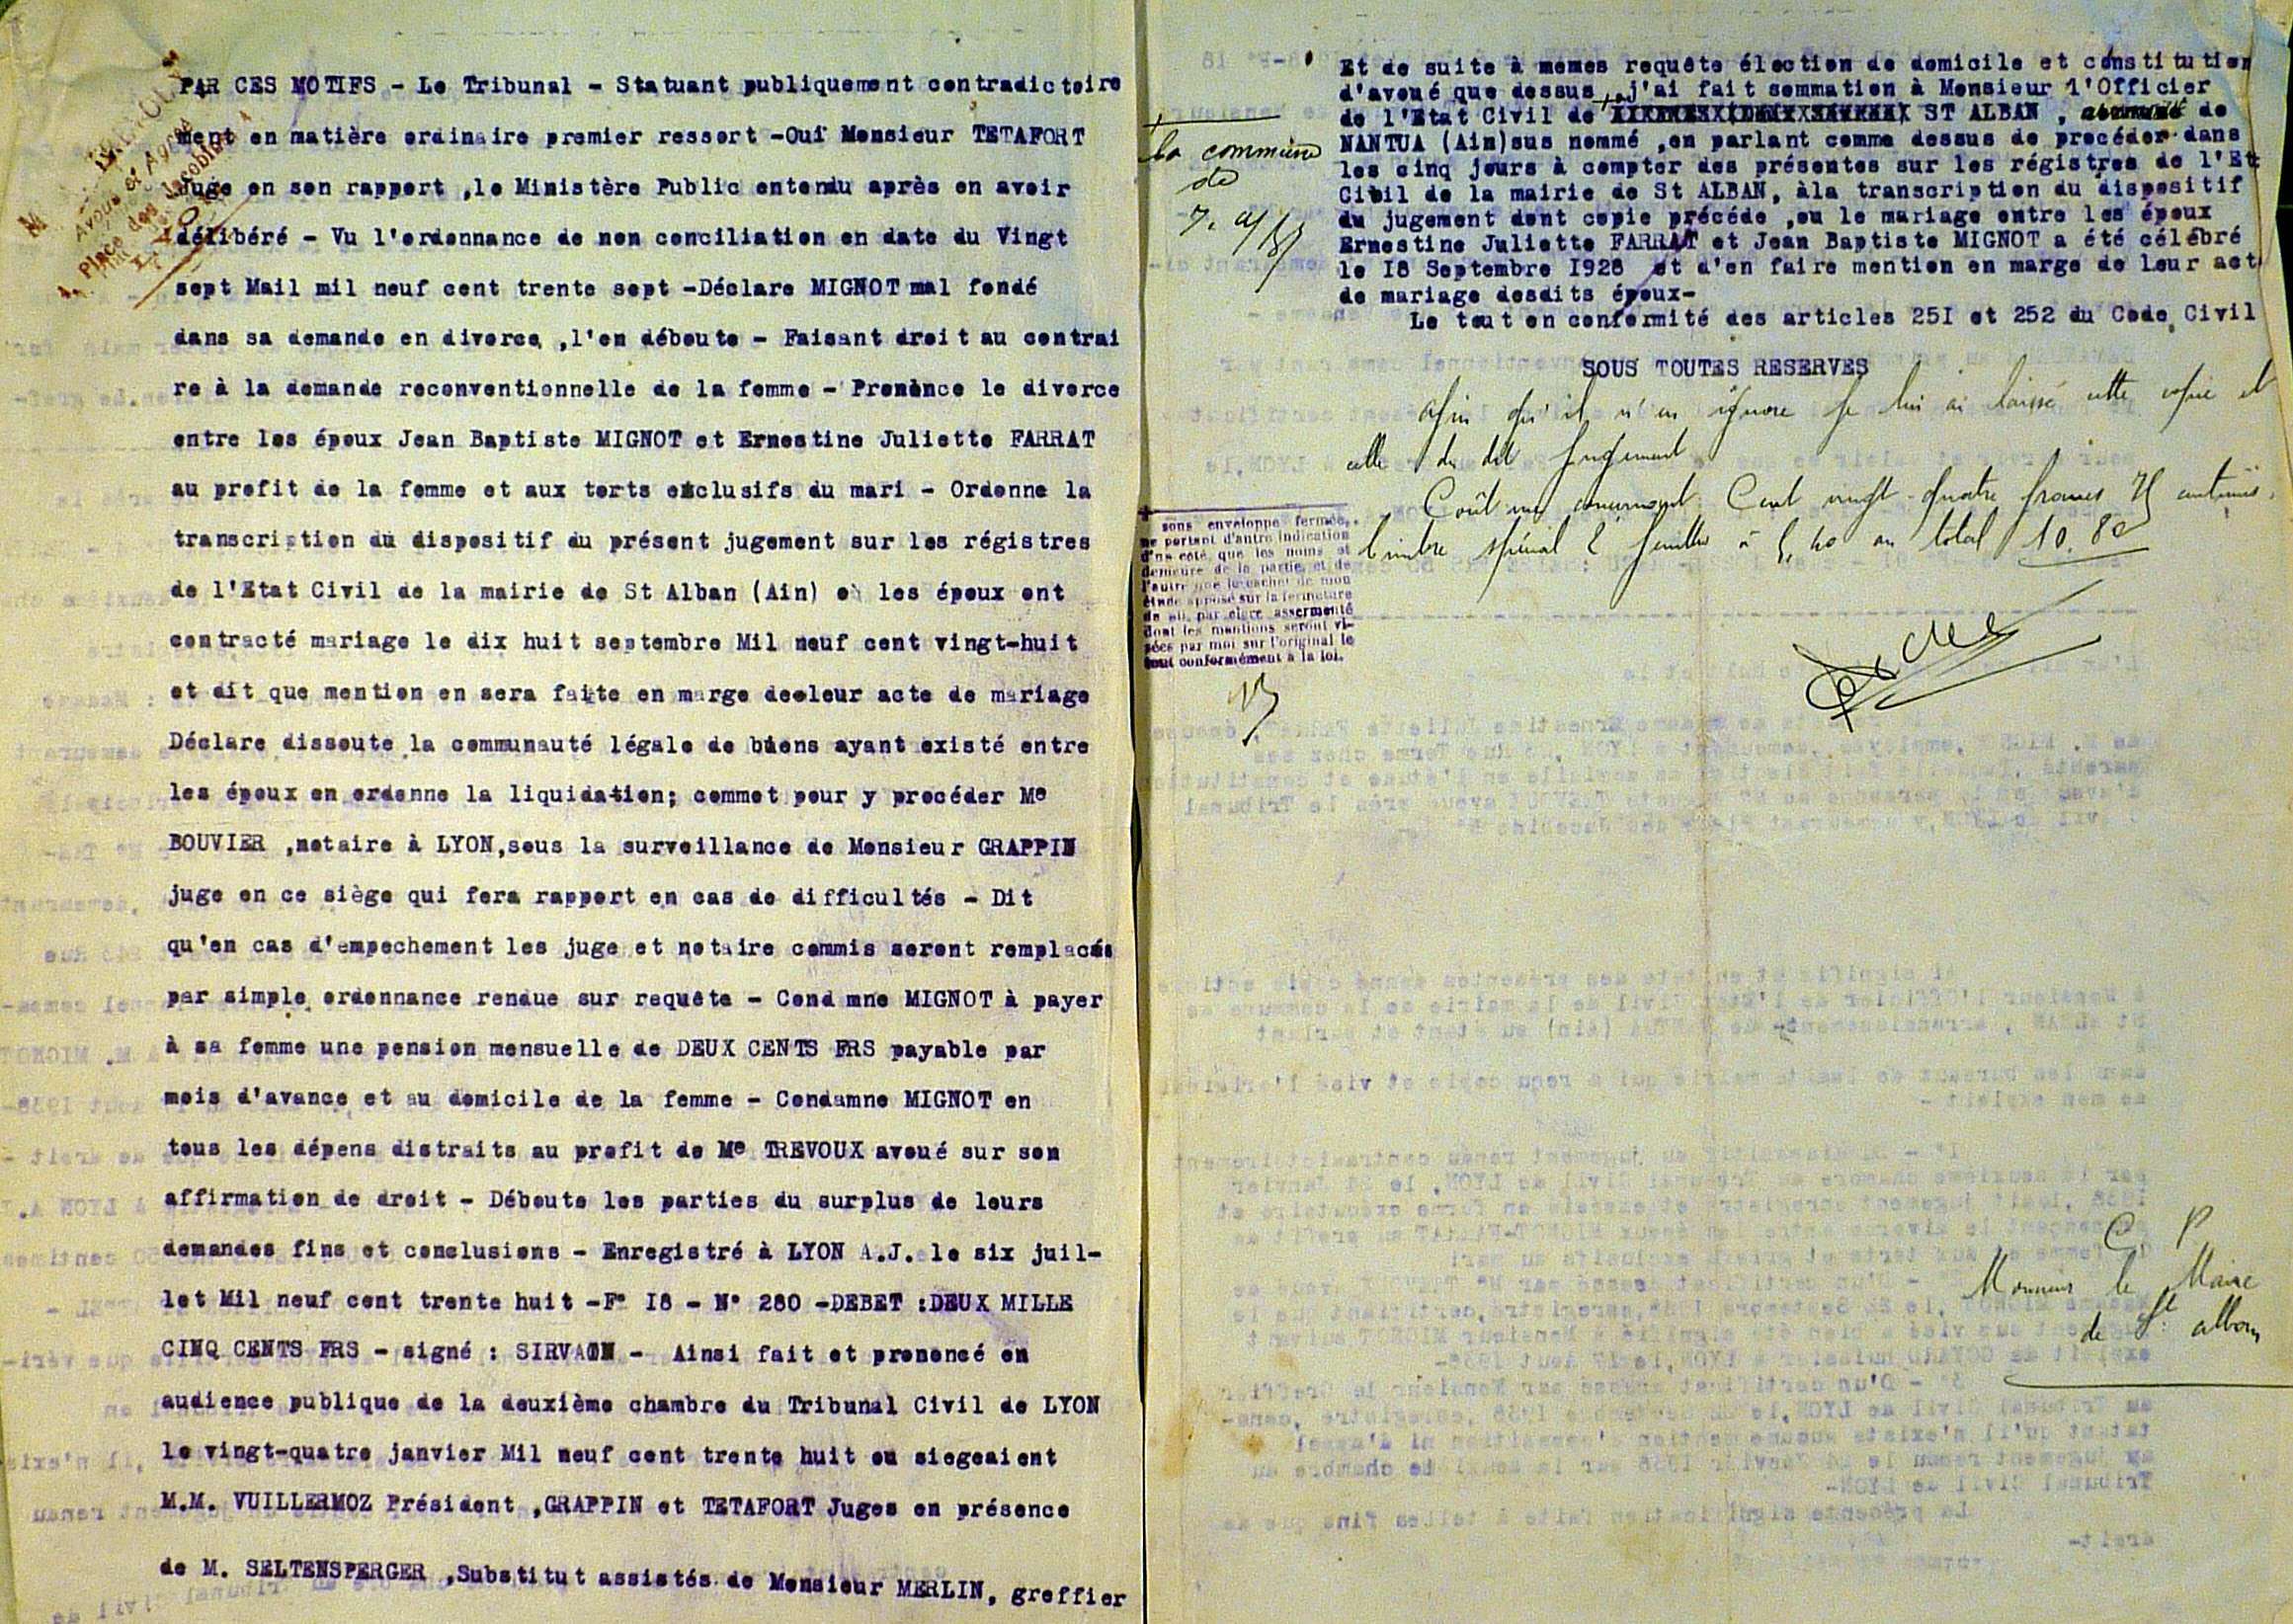 PAR CES MOTIFS - Le Tribunal - Statuant publiquement contradictoire
ment en matière ordinaire premier ressort -Ouï Monsieur TETAFORT
juge en son rapport ,le Ministère Public entendu après en avoir
délibéré - Vu l'ordonnance de non conciliation en date du Vingt
sept Mail mil neuf cent trente sept -Déclare MIGNOT mal fondé
dans sa demande en divorce ,l'en déboute - Faisant droit au contrai
re à la demande reconventionnelle de la femme - Prononce le divorce
entre les époux Jean Baptiste MIGNOT et Ernestine Juliette FARRAT
au profit de la femme et aux torts exclusifs du mari - Ordonne la
transcription du dispositif du présent jugement sur les régistres
de l'Etat Civil de la mairie de St Alban (Ain) où les époux ont
contracté mariage le dix huit septembre Mil neuf cent vingt-huit
et dit que mention en sera faite en marge deeleur acte de mariage
Déclare dissoute la communauté légale de biens ayant existé entre
les époux en ordonne la liquidation; commet pour y procéder Me
BOUVIER ,notaire à LYON,sous la surveillance de Monsieur GRAPPIN
juge en ce siège qui fera rapport en cas de difficultés - Dit
qu'en cas d'empechement les juge et notaire commis seront remplacés
par simple ordonnance rendue sur requête - Cond mne MIGNOT à payer
à sa femme une pension mensuelle de DEUX CENTS FRS payable par
mois d'avance et au domicile de la femme - Condamne MIGNOT en
tous les dépens distraits au profit de Me TREVOUX avoué sur son
affirmation de droit - Déboute les parties du surplus de leurs
demandes fins et conclusions - Enregistré à LYON A.J. le six juil-
let Mil neuf cent trente huit -F° I8 - N° 280 -DEBET :DEUX MILLE
CINQ CENTS FRS - signé : SIRVAON - Ainsi fait et prononcé en
audience publique de la deuxième chambre du Tribunal Civil de LYON
le vingt-quatre janvier Mil neuf cent trente huit ou siegeaient
M.M. VUILLERMOZ Président ,GRAPPIN et TETAFORT Juges en présence
de M. SELTENSPERGER ,Substitut assistés de Monsieur MERLIN, greffier
Avoué et Agréé
Place des Jacobins
Et de suite à memes requête élection de domicile et constitution
d'avoué que dessus ,j'ai fait sommation à Monsieur l'Officier
de l'Etat Civil de ST ALBAN , de
NANTUA (Ain)sus nommé ,en parlant comme dessus de procéder dans
les cinq jours à compter des présentes sur les régistres de l'Et
Civil de la mairie de St ALBAN, àla transcription du dispositif
du jugement dont copie précéde ,ou le mariage entre les époux
Ernestine Juliette FARRAT et Jean Baptiste MIGNOT a été célébré
le I8 Septembre I928 et d'en faire mention en marge de leur act
de mariage desdits époux-
Le tout en conformité des articles 25I et 252 du Code Civil
SOUS TOUTES RESERVES
la commune
de
Afin qu'il n'en ignore je lui ai laissé cette copie et
celle du dit jugement
Coût Cent vingt-quatre francs 75 centimes.
timbre spécial 2 feuilles à 5,40 au total 10.80
sous enveloppe fermée,
ne portant d'autre indication
d'un coté, que les noms et
demeure de la partie, et de
l'autre que le cachet de mon
étude apposé sur la fermeture
du pli, par clerc assermenté
dont les mentions seront vi-
sées par moi sur l'original le
tout conformément à la loi.
C P
Monsieur le Maire
de St alban